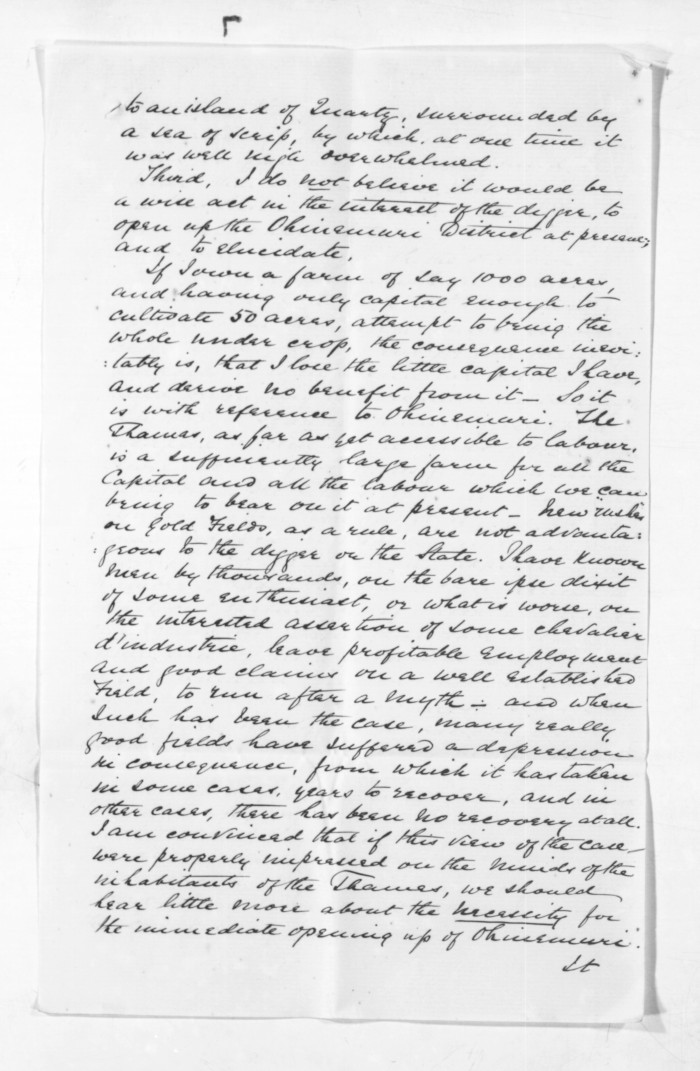 to an island of Quartz, surrounded by
a sea of scrip, by which, at one time it
was well nigh overwhelmed.
Third, I do not believe it would be
a wise act in the interest of the digger, to
open up the Ohinemuri District at present,
and to elucidate,
If I own a farm of say 1000 acres,
and having only capital enough to
cultivate 50 acres, attempt to bring the
whole under crop, the consequence inevi:
:tably is, that I lose the little capital I have,
and derive no benefit from it – So it
is with reference to Ohinemuri. The
Thames, as far as yet accessible to labour,
is a sufficiently large farm for all the
Capital and all the labour which we can
bring to bear on it at present – New "rushes
on Gold Fields, as a rule, are not advanta:
:geous to the digger or the State. I have known
men by thousands, on the bare ipse dixit
of some enthusiast, or what is worse, on
the interested assertion of some chevalier
d'industrie, leave profitable employment
and good claims on a well established
Field, to run after a myth – and when
such has been the case, many really
good fields have suffered a depression
in consequence, from which it has taken
in some cases, years to recover, and in
other cases, there has been no recovery at all.
I am convinced that if this view of the case
were properly impressed on the minds of the
inhabitants of the Thames, we should
hear little more about the necessity for
the immediate opening up of Ohinemuri.
It